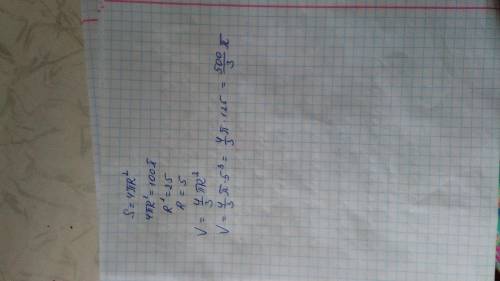 S = 4πR²
4πR² = 100π
R² = 25
R = 5
V = 4/3 πR³
V = 4/3 π · 5³ = 4/3 π · 125 = 500/3 π